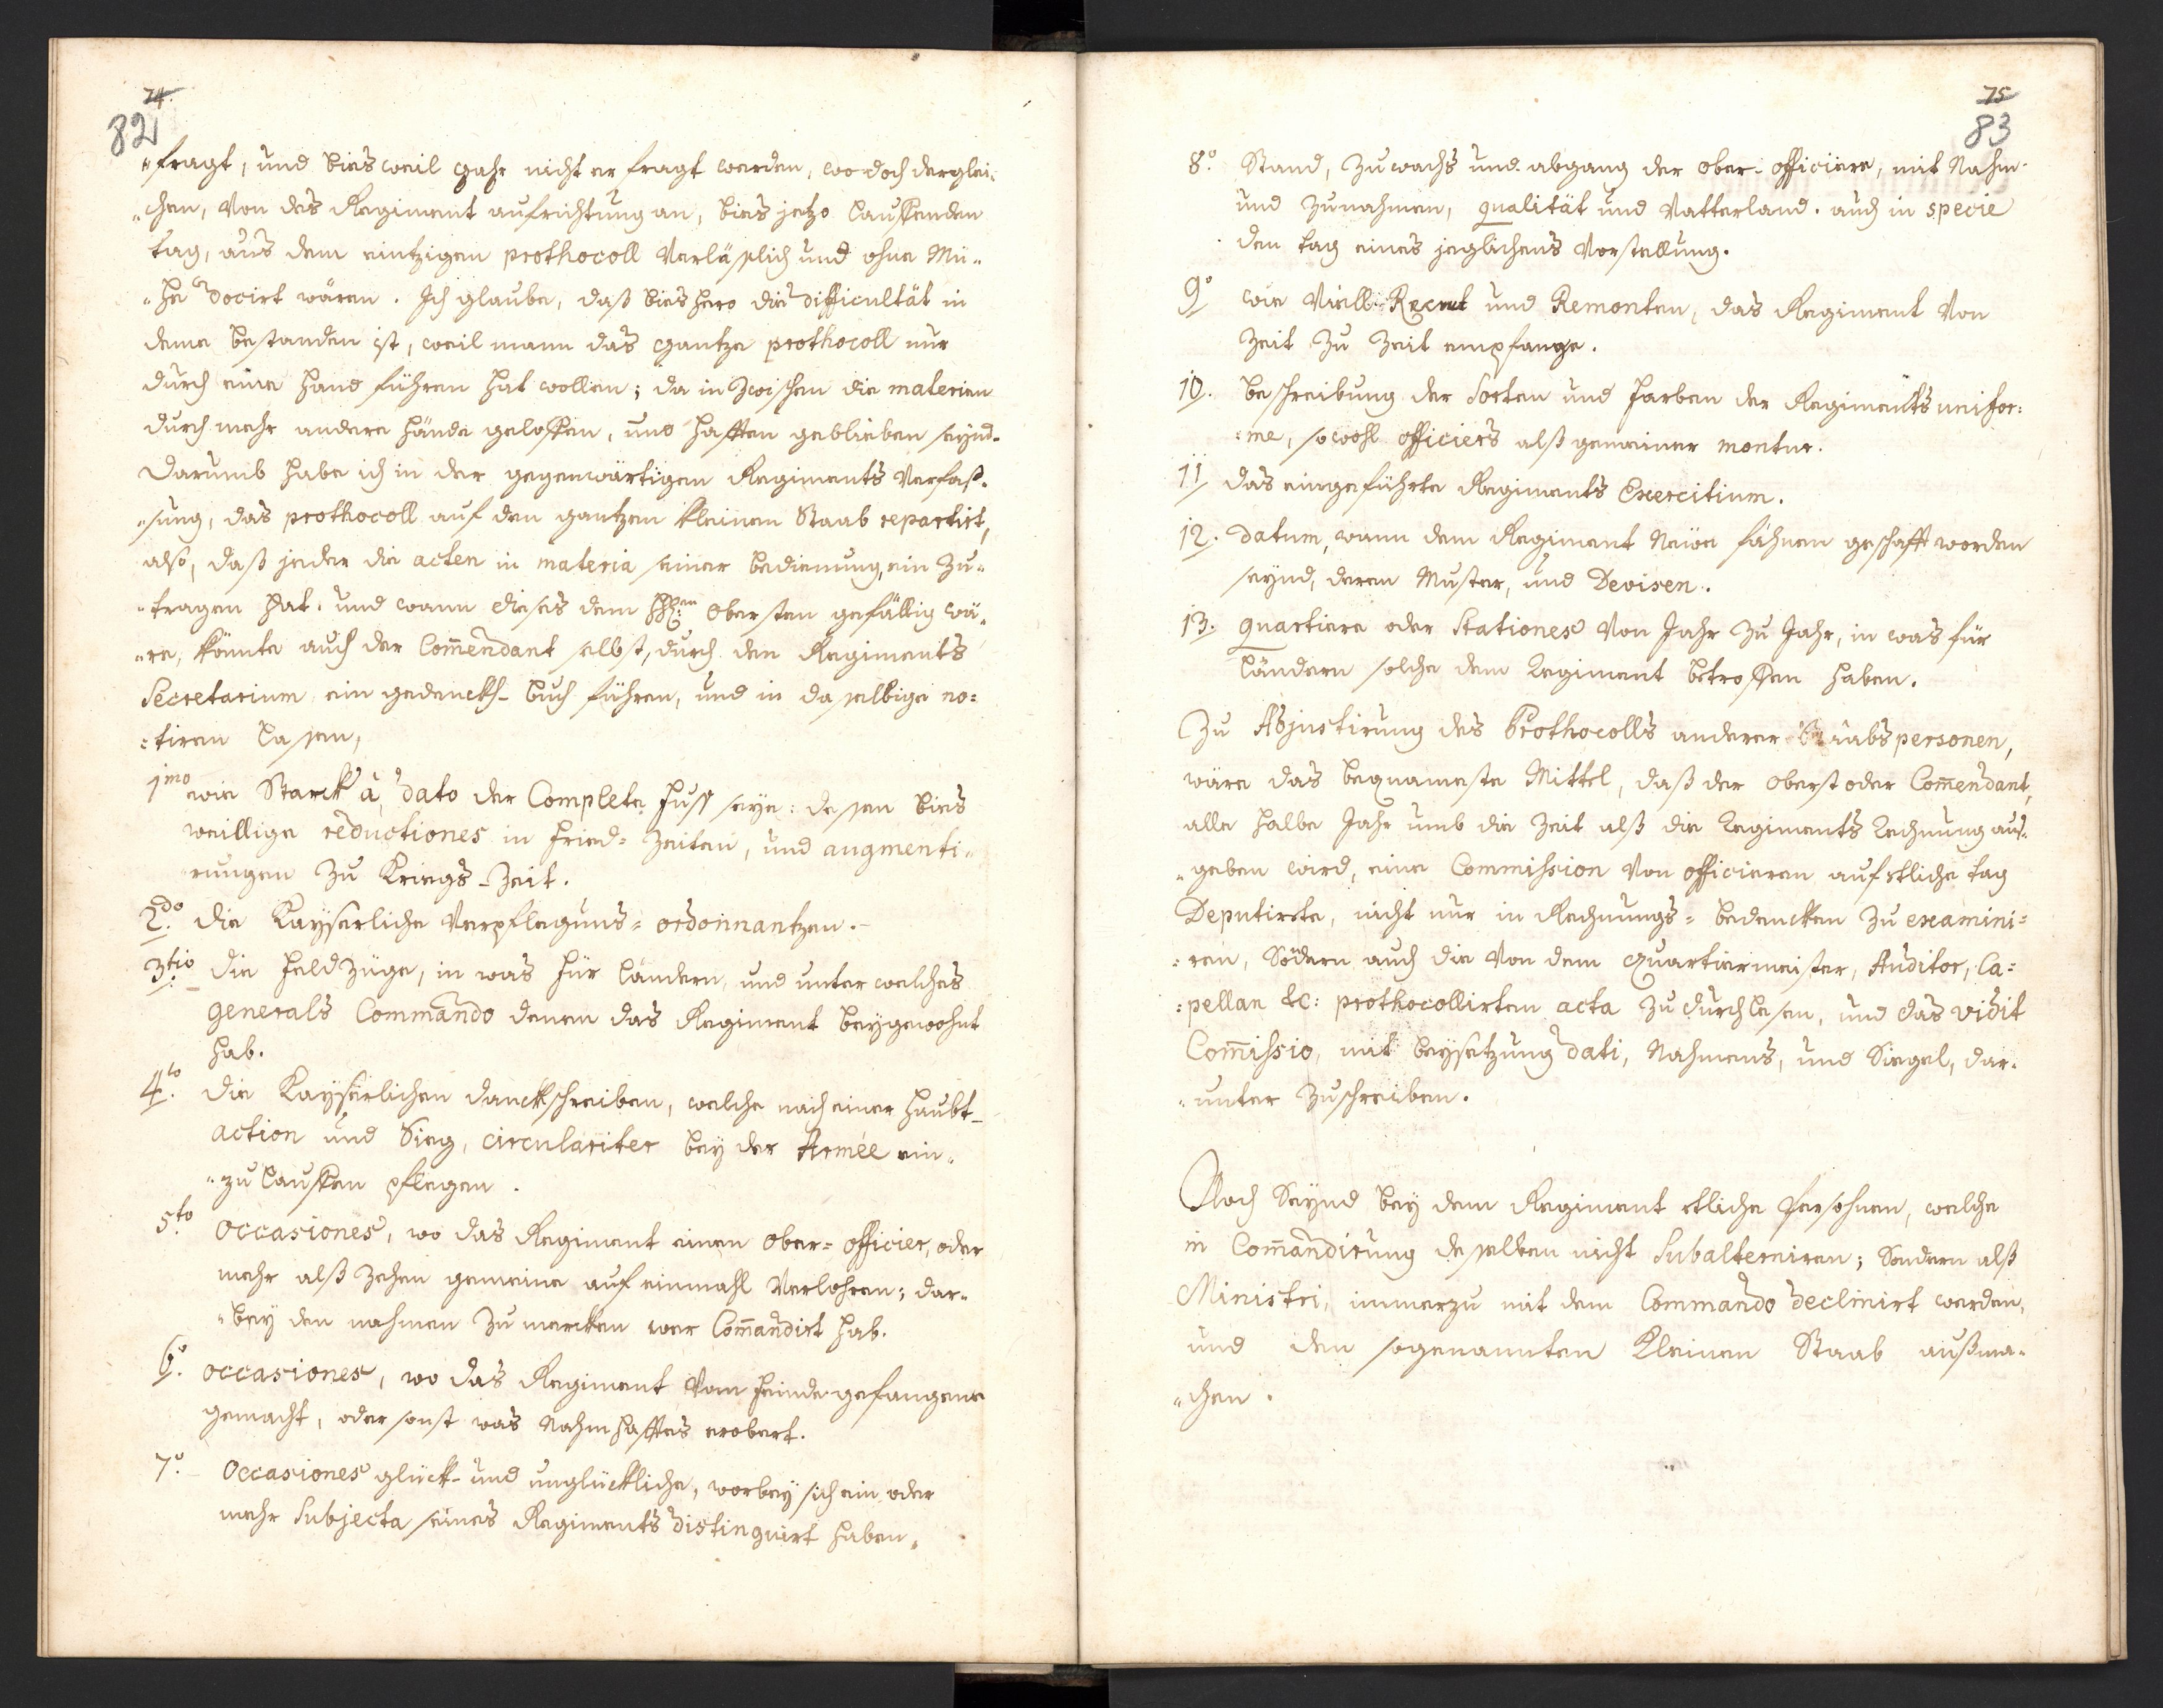 74.
82
"fragt, und bies weil gahr nicht erfragt werden, wo doch derglei-
"chen, von des Regiment aufrichtung an, bies jetzo lauffenden
tag, aus dem eintzigen prothocoll verläßlich und ohne Mü-
"he docirt wären. Ich glaube, daß bieshero die difficultät in
deme bestanden ist, weil mann das gantze prothocoll nur
durch eine hand führen hat wollen; da inzwischen die materien
durch mehr andere hände geloffen, und hafften geblieben seynd.
Darumb habe ich in der gegenwärtigen Regiments Verfaß-
"sung, das prothocoll auf den gantzen kleinen Staab repartirt,
also, daß jeder die acten in materia seiner bedienung, ein zu-
"tragen hat. und wann dieses dem Obersten gefällig wä-
"re, könnte auch der Com̅endant selbst, durch den Regiments
Secretarium ein gedenckh-buch führen, und in daselbige no=
=tiren lassen,
1mo wie Starck à dato der Complete fuss seye: dessen bies
weillige reductiones in fried=zeiten, und augmenti-
rungen zu Kriegs-zeit.
2do. die Kayserliche Verpflegungs=ordonnantzen.
3tio. die feldzüge, in was für ländern, und unter welches
Generals Commando denen das Regiment beygewohnt
hab.
4to. die Kayserlichen danckschreiben, welche nach einer haubt-
action und Sieg, circulariter bey der Armée ein-
"zulauffen pflegen.
5to. occasiones, wo das Regiment einen Ober=officier, oder
mehr alß zehen gemeine auf einmahl verlohren; dar-
"bey den nahmen zu mercken wer Com̅andirt hab.
6o. occasiones, wo das Regiment vom feinde gefangene
gemacht, oder sonst was Nahmhafftes erobert.
7o. Occasiones glück- und unglückliche, worbey sich ein oder
mehr Subjecta seines Regiments distinguirt haben.
75
83
8o. Stand, zuwachs und abgang der Ober-officiere, mit Nahm-
und zunahmen, qualität und Vatterland. auch in specie
den tag eines jeglichens Vorstellung.
9o wie viell Recrut und Remonten, das Regiment von
zeit zu zeit empfange.
10. beschreibung der Sorten und farben der Regiments unifor=
=me, sowohl officiers alß gemeiner montur.
11 das eingeführte Regiments Exercitium.
12. datum, wann dem Regiment Neüe fahnen geschafft worden
seynd, deren Muster, und Devisen.
13. quartiere oder Stationes von Jahr zu Jahr, in was für
ländern solche dem Regiment betroffen haben.
Zu Adjustirung des Prothocolls anderer Staabspersonen,
wäre das bequameste Mittel, daß der Oberst oder Com̅endant,
alle halbe Jahr umb die Zeit alß die Regiments Rechnung auf-
"geben wird, eine Commission von officieren auf etliche tag
Deputirte, nicht nur in Rechnungs=bedencken zu examini=
=ren, Södern auch die von dem Quartiermeister, Auditor, Ca=
=pellan &c: prothocollirten acta zu durchlesen, und das vidit
Com̅issio, mit beysetzung dati, Nahmens, und Siegel, dar-
"unter zuschreiben.
Noch Seynd bey dem Regiment etliche Persohnen, welche
in Com̅andirung desselben nicht Subalterniren; Sondern alß
Ministri, immerzu mit dem Commando declinirt werden,
und den sogenannten Kleinen Staab außma-
"chen.